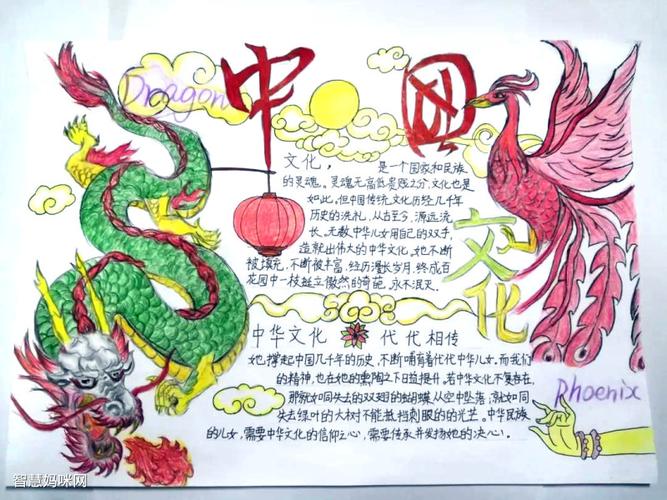 Dragon
中国
文化
文化，是一个国家和民族
的灵魂。灵魂无高低贵贱之分，文化也是
如此，但中国传统文化历经几千年
历史的洗礼，从古至今，源远流
长。无数中华儿女用自己的双手，
造就出伟大的中华文化。她不断
被填充，不断被丰富，经历漫长岁月，终成百
花园中一枝挺立傲然的奇葩，永不泯灭。
中华文化 代代相传
她撑起中国几千年的历史，不断哺育着代代中华儿女。而我们
的精神，也在她的熏陶之下日益提升。若中华文化不复存在，
那就如同失去的双翅的蝴蝶从空中坠落，就如同
失去绿叶的大树不能抵挡刺眼的的光芒。中华民族
的儿女，需要中华文化的信仰之心，需要传承并发扬她的决心！
Phoenix
智慧妈咪网